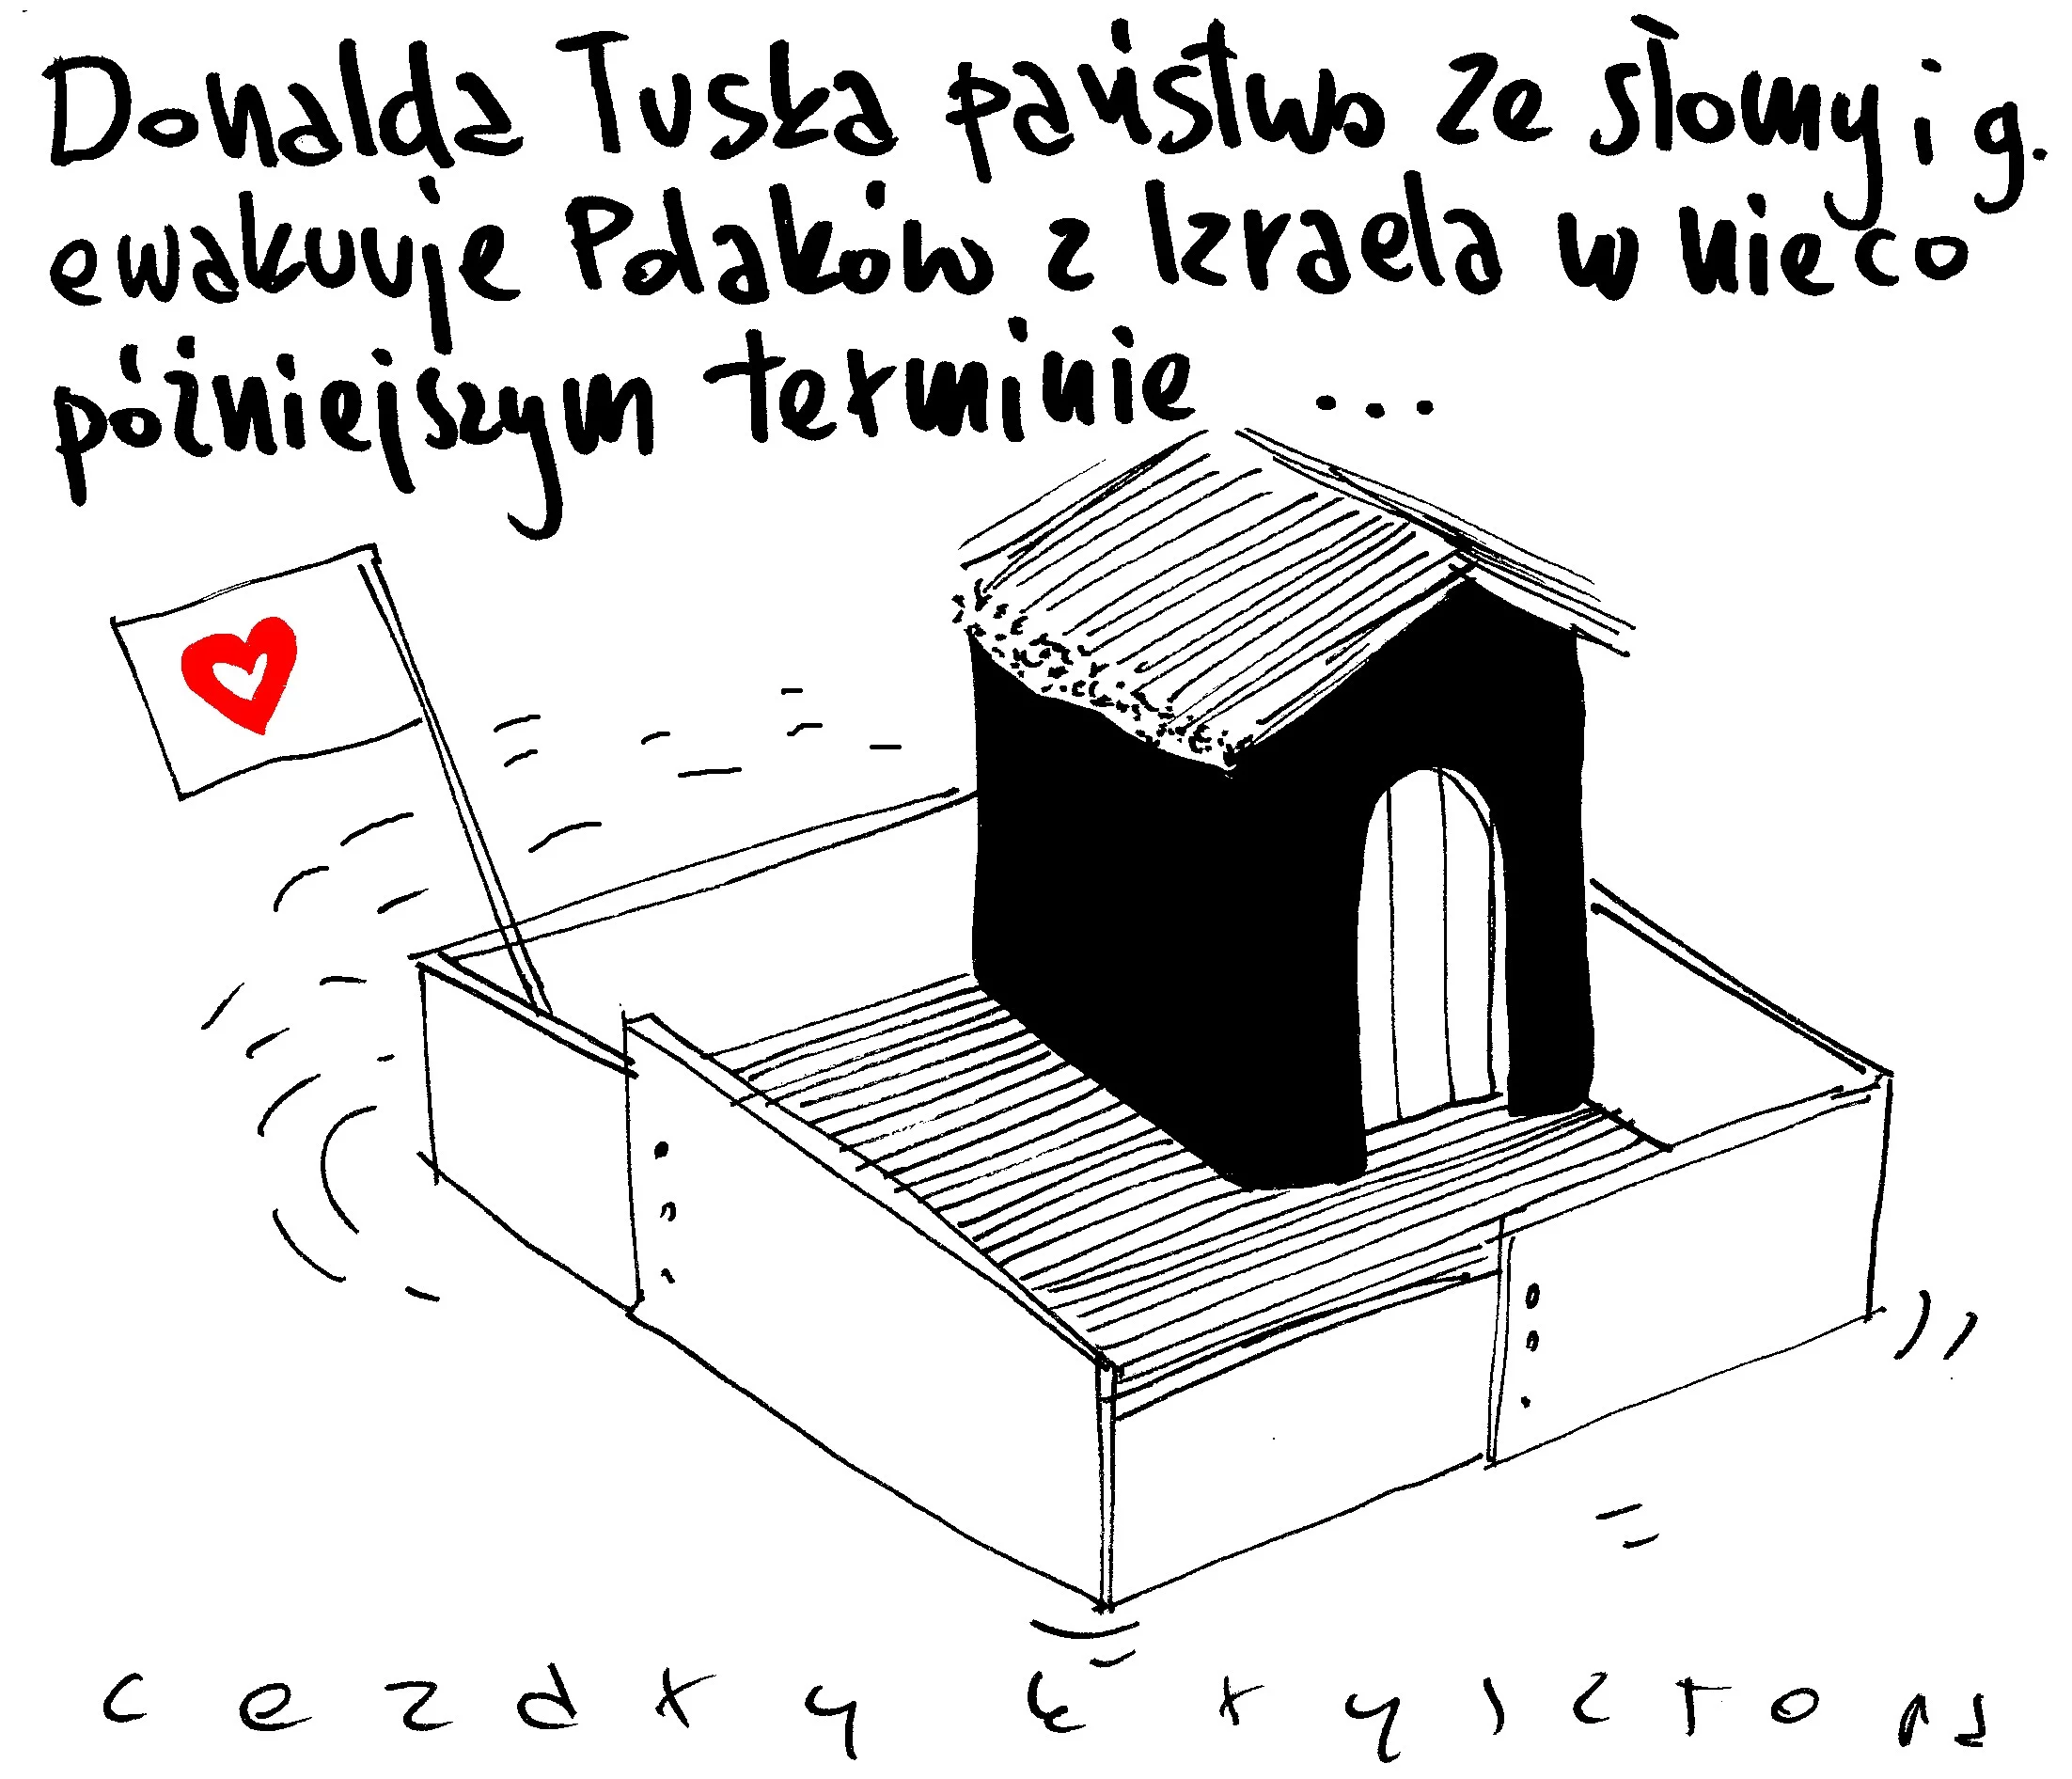 Donalda Tuska państwo ze słomy i g.
ewakuuje Polaków z Izraela w nieco
późniejszym terminie ...
cezary krysztopa